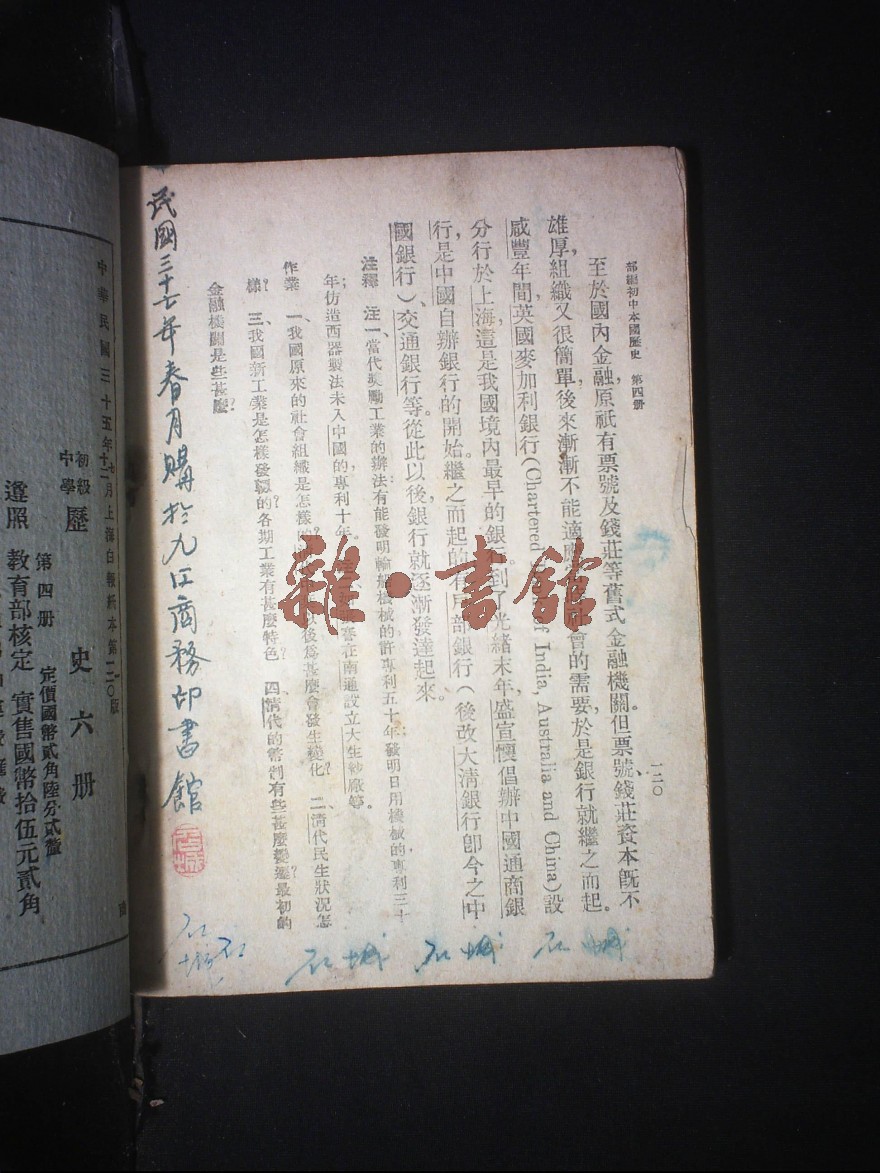 部編初中本國歷史 第四冊
一二〇
至於國內金融,原祇有票號及錢莊等舊式金融機關。但票號、錢莊資本旣不
雄厚,組織又很簡單,後來漸漸不能適應社會的需要,於是銀行就繼之而起。
咸豐年間,英國麥加利銀行(Chartered of India, Australia and China)設
分行於上海,這是我國境內最早的銀 到了光緒末年,盛宣懷倡辦中國通商銀
行,是中國自辦銀行的開始。繼之而起的有戶部銀行(後改大清銀行卽今之中
國銀行)、交通銀行等。從此以後,銀行就逐漸發達起來。
注釋 注一、當代奬勵工業的辦法:有能發明輪船機械的,許專利五十年;發明日用機械的,專利三十
年;仿造西器製法未入中國的,專利十年。 在南通設立大生紗廠等。
作業 一、我國原來的社會組織是怎樣的? 以後爲甚麼會發生變化? 二、清代民生狀況怎
樣? 三、我國新工業是怎樣發軔的?各期工業有甚麼特色? 四、清代的幣制有些甚麼變遷?最初的
金融機關是些甚麼?
民國三十七年春月購於九江商務印書館
石城
石城
石城
石城
石城
中華民國三十五年 月上海白報紙本第一二〇版
初級中學 歷史六册
第四册 定價國幣貳角陸分貳釐
遵照教育部核定 實售國幣拾伍元貳角
雜·書館